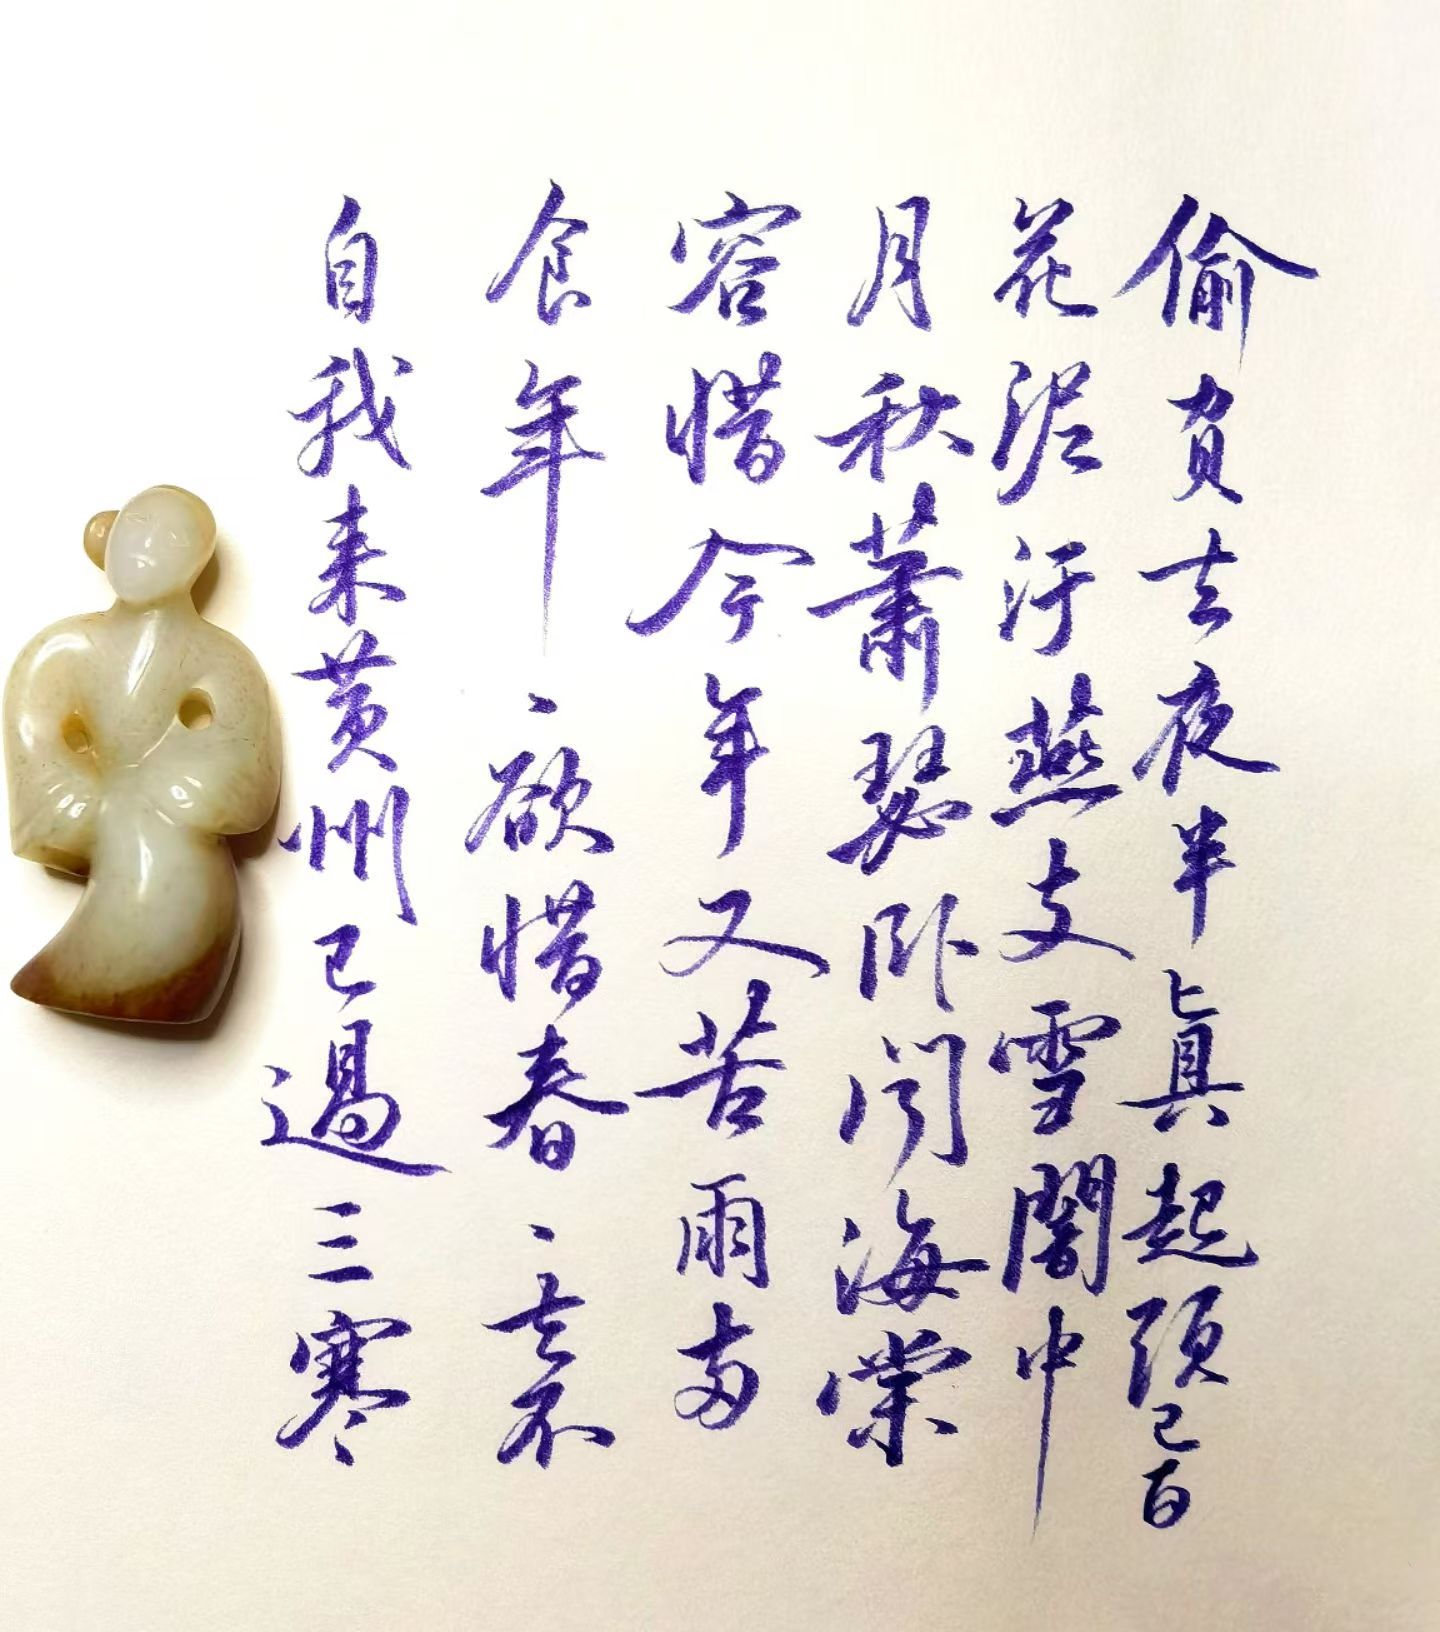 自我来黄州已過三寒
食年、欲惜春、去不
容惜今年又苦雨兩
月秋蕭瑟卧聞海棠
花泥汙燕支雪闇中
偷負去夜半真起頭已白